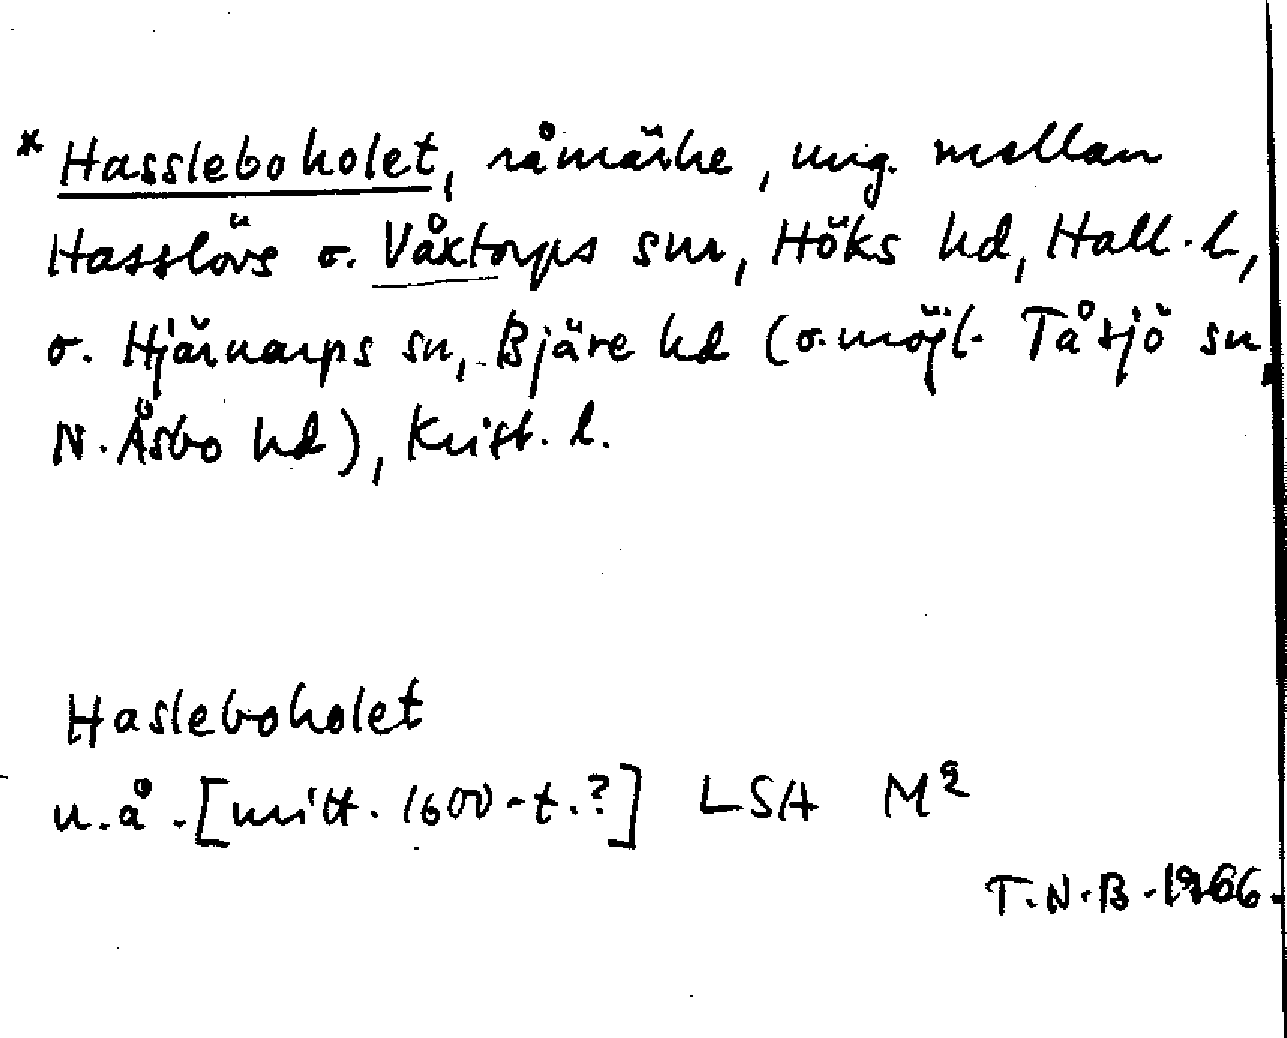 * Hassleboholet, råmärke, ung. mellan
Hasslövs o. Våxtorps snr, Höks hd, Hall. l,
o. Hjärnarps sn, Bjäre hd (o. möjl. Tåsjö sn,
N. Åsbo hd), Krist. l.
Hasleboholet
u.å. [mitt. 1600-t.?] LSA M2
T.N.B. 1966.